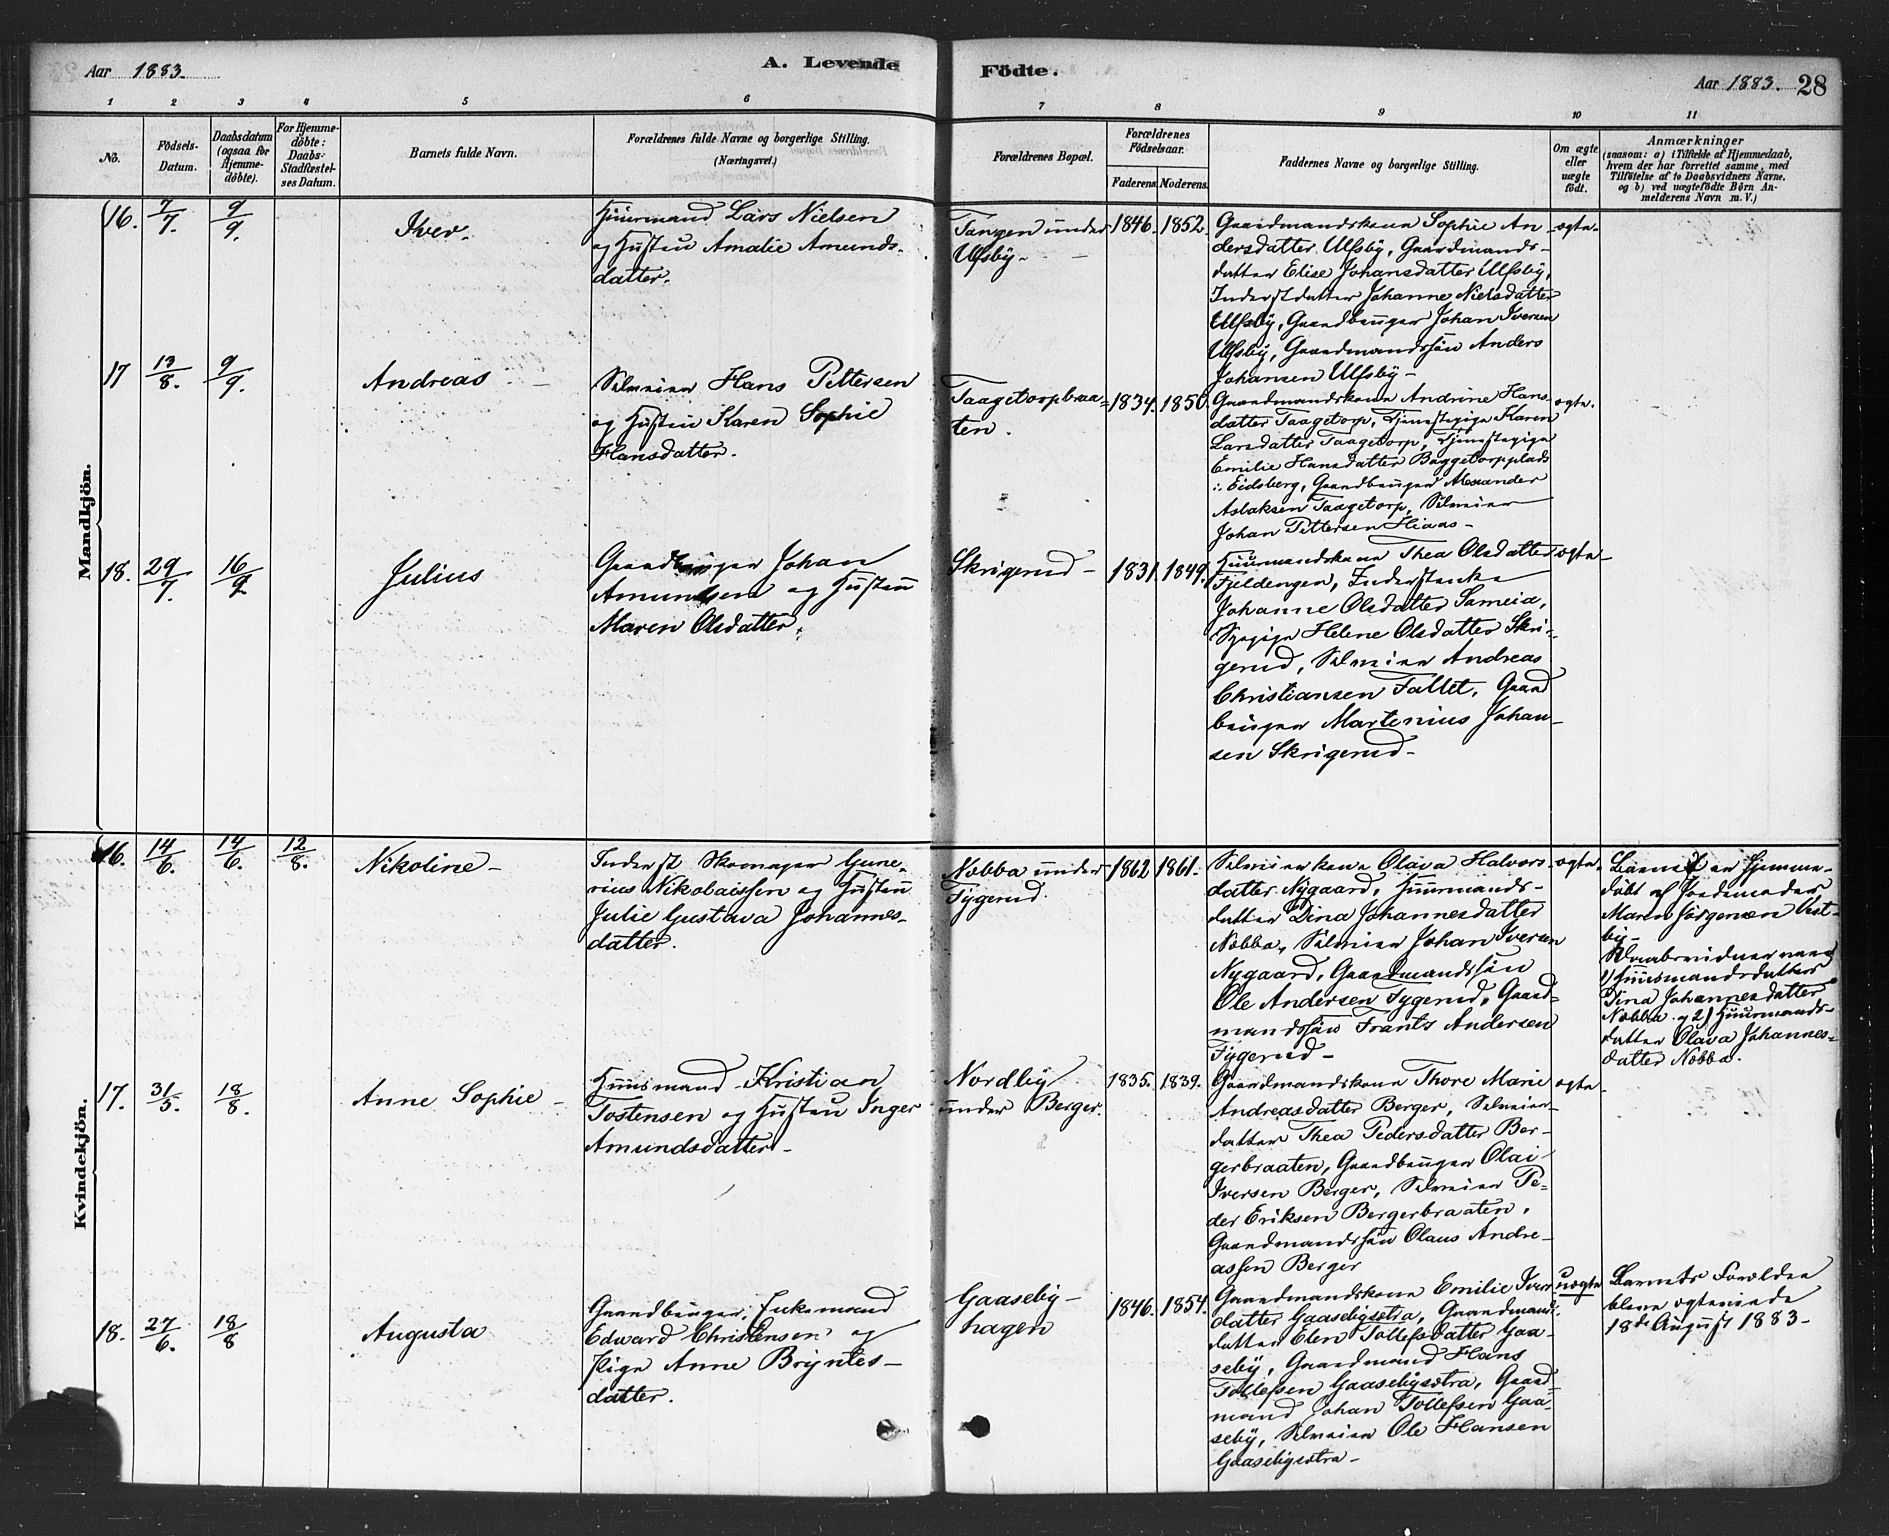 Aar 1883.
A. Levende
Födte.
Aar 1883. 28
1 2 3 4 5 6 7 8 9 10 11
No.
Födsels-
Datum.
Daabsdatum
(ogsaa for
Hjemme-
döbte).
For Hjemme-
döbte:
Daabs-
Stadfæstel-
ses Datum.
Barnets fulde Navn.
Forældrenes fulde Navne og borgerlige Stilling.
(Næringsvei.)
Forældrenes Bopæl.
Forældrenes
Födselsaar.
Faderens. Moderens.
Faddernes Navne og borgerlige Stilling.
Om ægte
eller
uægte
födt.
Anmærkninger
(saasom: a) i Tilfælde af Hjemmedaab,
hvem der har forrettet samme, med
Tilföielse af to Daabsvidners Navne,
og b) ved uægtefödte Börn An-
melderens Navn m. V.)
Mandkjön.
16. 7/7. 9/9. Iver.
Huusmand Lars Nielsen
og Hustru Amalie Amunds-
datter.
Tangen under
Ulfsby.
1846. 1852.
Gaardmandskone Sophie An-
dersdatter Ulfsby, Gaardmands-
datter Elise Johansdatter Ulfsby,
Inderstdatter Johanne Nielsdatter
Ulfsby, Gaardbruger Johan Iversen
Ulfsby, Gaardmandssön Anders
Johansen Ulfsby-
ægte.
17 13/8. 9/9. Andreas
Selveier Hans Pettersen
og Hustru Karen Sophie
Hansdatter.
Taagetorpbraa-
ten.
1834. 1850
Gaardmandskone Andrine Hans-
datter Taagetorp, Tjenestepige Karen
Larsdatter Taagetorp, Tjenestepige
Emilie Hansdatter Baggetorpplads
i Eidsberg, Gaardbruger Alexander
Aslaksen Taagetorp, Selveier
Johan Pettersen Haas-
ægte.
18. 29/7. 16/9 Julius
Gaardbruger Johan
Amundsen og Hustru
Maren Olsdatter.
Skrigerud-
1831. 1849.
Huusmandskone Thea Olsdatter
Fjeldengen, Inderstenke
Johanne Olsdatter Sameia,
Pige Helene Olsdatter Skri-
gerud, Selveier Andreas
Christiansen Tallet, Gaard
bruger Martenius Johan-
sen Skrigerud-
ægte-
Kvindekjön.
16. 14/6. 14/6. 12/8. Nikoline-
Inderst Skomager Gune-
rius Nikolaissen og Hustru
Julie Gustava Johannes-
datter.
Næbba under
Tygerud.
1862 1861.
Selveierkone Olava Halvors-
datter Nygaard, Huusmands-
datter Dina Johannesdatter
Næbba, Selveier Johan Iversen
Nygaard, Gaardmandssön
Ole Andersen Tygerud, Gaard-
mandssön Frants Andersen
Tygerud-
ægte.
Barnet er hjemme-
döbt af Jordemoder
Maren Jörgensen Vest-
by-
Daabsvidner vare
1) Huusmandsdatter
Dina Johannesdatter
Næbba og 2) Huusmands-
datter Olava Johannes-
datter Næbba.
17. 31/5. 18/8. Anne Sophie-
Huusmand Kristian
Tostensen og Hustru Inger
Amundsdatter-
Nordby
under Berger.
1835. 1839.
Gaardmandskone Thore Marie
Andreasdatter Berger, Selveier-
datter Thea Pedersdatter Ber-
gerbraaten, Gaardbruger Olai
Iversen Berger, Selveier Pe-
der Eriksen Bergerbraaten,
Gaardmandssön Olaus Andre-
assen Berger
ægte-
18. 27/6. 18/8 Augusta
Gaardbruger, Enkemand
Edward Christensen og
Pige Anne Bryntes-
datter.
Gaaseby-
hagen
1846. 1854.
Gaardmandskone Emilie Iver-
datter Gaasebysætra, Gaardmand-
datter Elen Tollefsdatter Gaa-
seby, Gaardmand Hans
Tollefsen Gaasebysætra, Gaard-
mand Johan Tollefsen Gaa-
seby, Selveier Ole Hansen
Gaasebysætra-
uægte
Barnets Forældre
bleve ægteviede
18de August 1883-